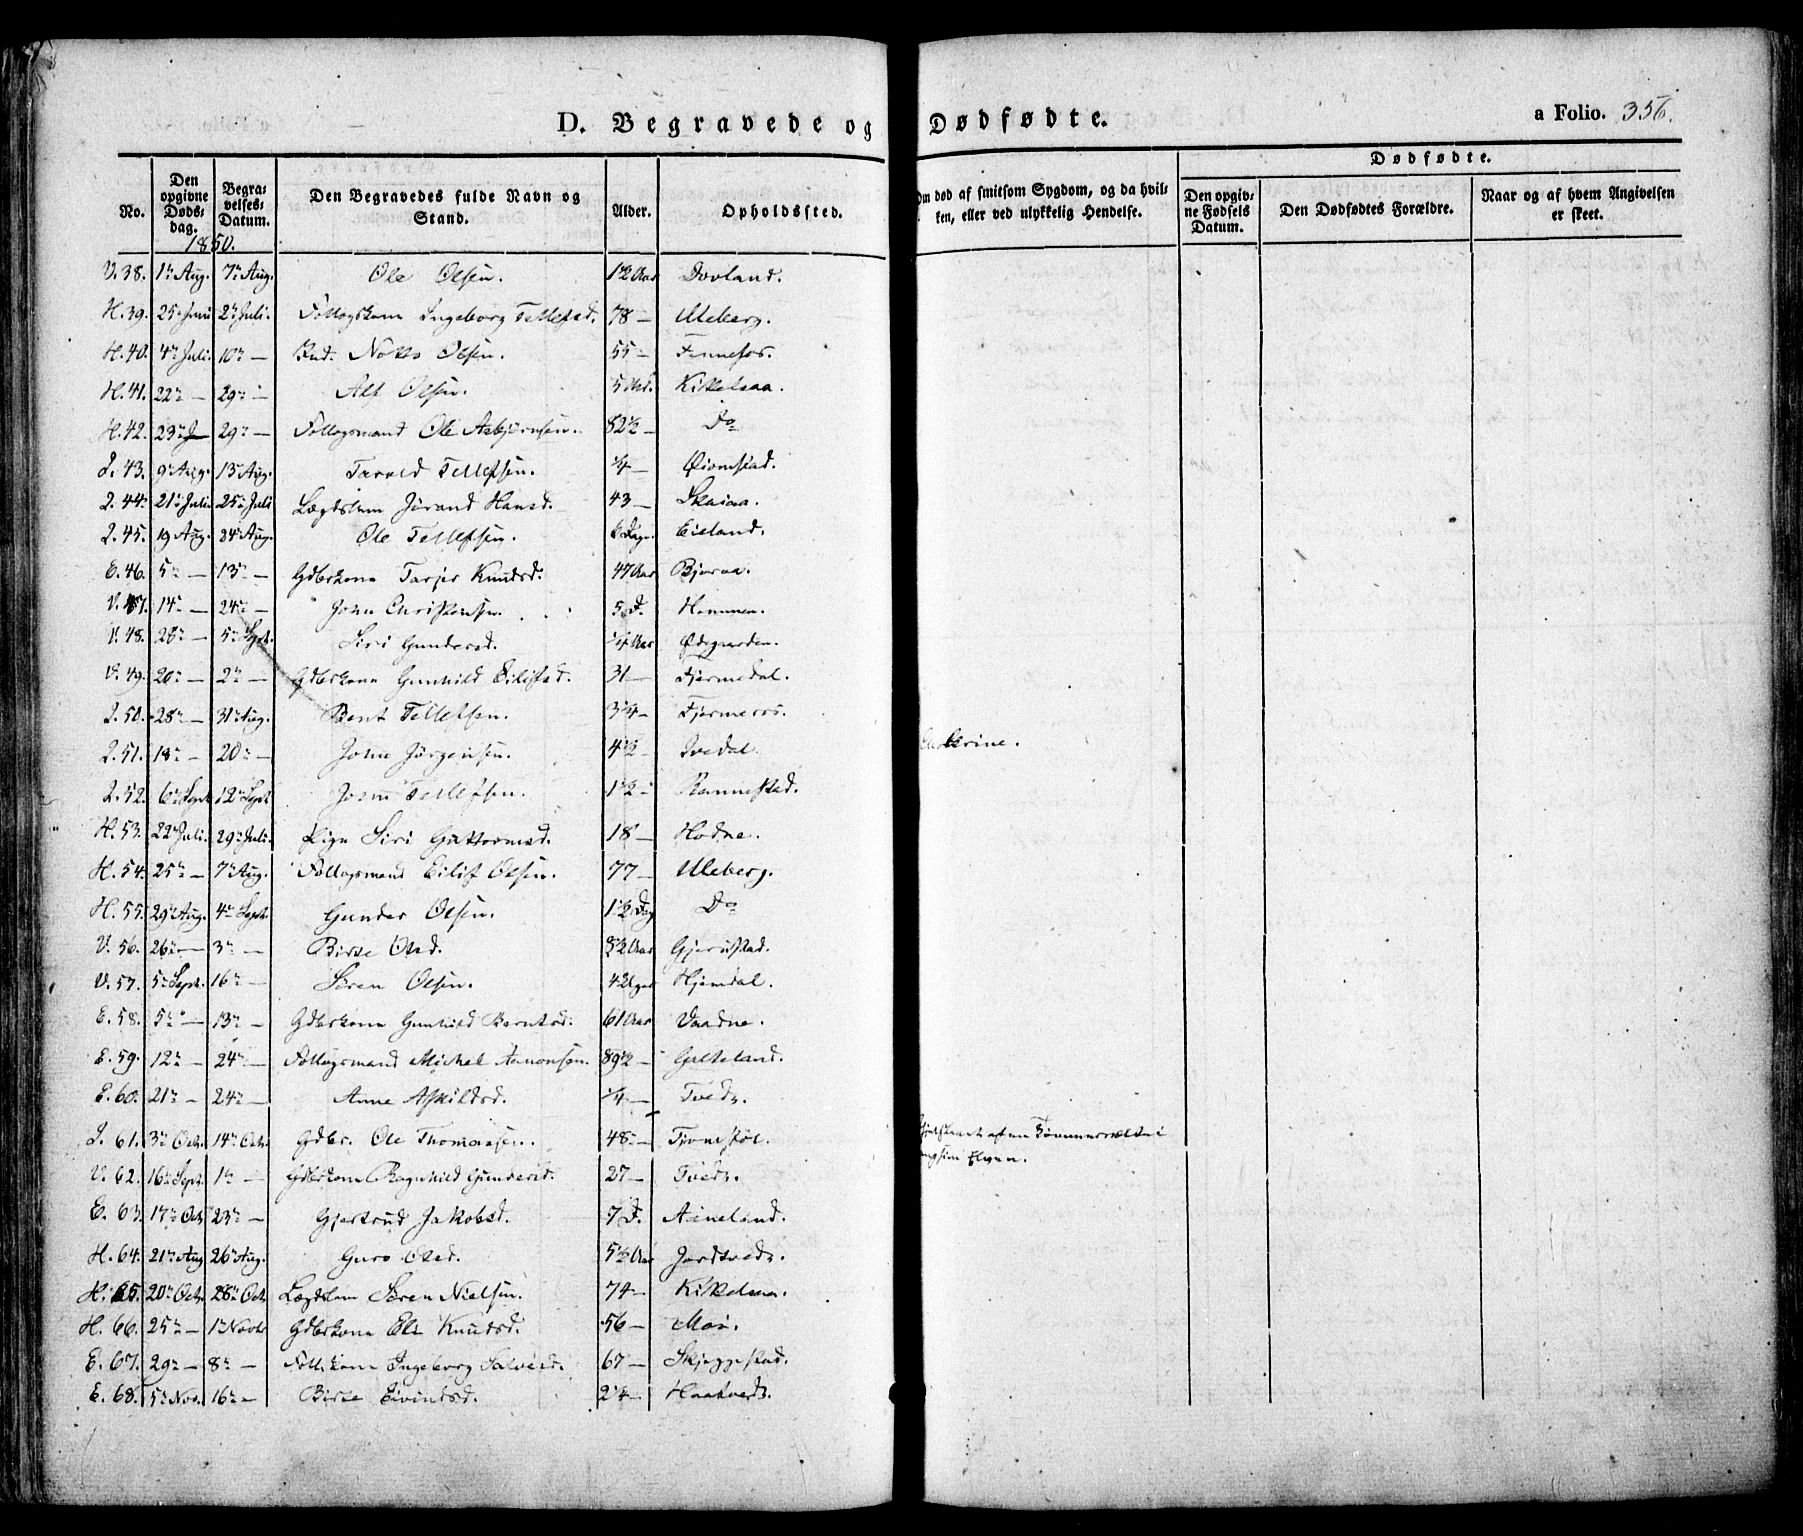 D. Begravede og Dødfødte.
a Folio. 356.
No.
Den opgivne Døds-dag.
Begra-velses-Datum.
Den Begravedes fulde Navn og Stand.
Alder.
Opholdssted.
Om død af smitsom Sygdom, og da hvil-ken, eller ved ulykkelig Hendelse.
Dødfødte.
Den opgiv-ne Fødsels Datum.
Den Dødfødtes Forældre.
Naar og af hvem Angivelsen er skeet.
1850.
V. 38. 1ste Aug. 7de Aug. Ole Olsen. 1½ Aar Dovland.
H. 39. 25de Juni 2de Juli. Føllogskone Ingeborg Tellefsd. 78 — Uleberg.
H. 40. 4de Juli. 10de — Notto Olsen. 55 — Fennefos.
H. 41. 22de — 29de — Alf Olsen. 5 Kirkelsaa.
H. 42. 23de J— 29de — Føllogsmand Ole Asbjörnsen. 82½ — Do
I. 43. 9de Aug. 13de Aug. Tarald Tellefsen. ¼ — Øiomstad.
I. 44. 21de Juli. 25de Juli Lægdslem Jörand Hansd. 43 — Skaiaa.
I. 45. 19 Aug. 24de Aug. Ole Tellefsen. 6 Dage. Eieland.
E. 46. 5te — 13de — Gdbrkone Tarjer Knudsd. 47 Aar Bjoraa.
V. 47. 14de — 24de — John Christensen. 5 D. Hommen.
V. 48. 28de — 5te Sept. Siri Gundersd. ¼ Aar Ødegaarden.
V. 49. 20de — 2de — Gdbrkone Gunhild Eilifsd. 31 — Fjermedal.
I. 50. 28de — 31te Aug. Bent Tellefsen. 3¼ — Fjermeros.
I. 51. 18de — 20de — John Jörgensen. 4½ — Ivedal.
I. 52. 6te Sept. 12te Sept. John Tellefsen. 1½ — Rannestad.
H. 53. 22de Juli. 29de Juli. Pige Siri Guttormsd. 18 — Hodne.
H. 54. 25de — 7de Aug. Føllogsmand Eilif Olsen. 77 — Uleberg.
H. 55. 29de Aug. 4de Sept. Gunder Olsen. 1½ Dag Do
V. 56. 26de — 3de — Birte Olsd. 8½ Aar Gjerustad.
V. 57. 5te Sept. 16de — Sören Olsen. 4 Uger Hjemdal.
E. 58. 5te — 13de — Gdbrkone Gunhild Berntsd. 61 Aar Vaadne.
E. 59. 12te — 24de — Føllogsmand Michel Aanonsen. 89½ — Galteland.
E. 60. 21de — 24de — Anne Askildsd. ¼ — Tvedt.
I. 61. 3de Octr. 14de Octr. Gdbr. Ole Thomassen. 48 — Tjomstöl.
V. 62. 16de Sept. 1ste — Gdbrkone Ragnhild Gundersd. 27 — Tvedt.
E. 63. 17de Oct. 23de — Gjertrud Jakobsd. 7 D. Asneland.
H. 64. 21de Aug. 26de Aug. Guro Olsd. 5½ Aar Jordtvedt.
H. 65. 20de Octr. 28de Octr. Lægdslem Sören Nielsen. 74 — Kirkelsaa.
H. 66. 25de — 1ste Novbr Gdbrkone Eli Knudsd. 56 — Moi.
E. 67. 29de — 8de — Föll.kone Ingeborg Salvesd. 67 — Skjeggestad.
E. 68. 5te Nov. 16de — Birte Eivindsd. 2¼ — Haatvedt.
af en Tömmervælte i
Elven.